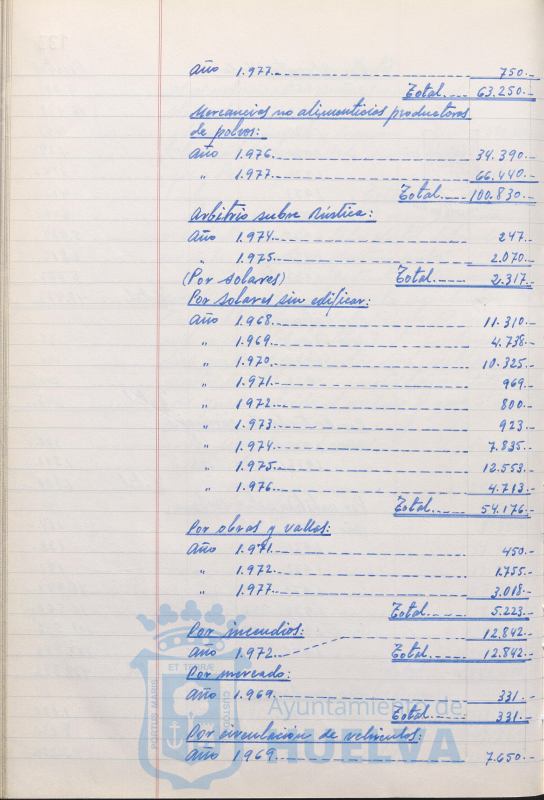 Año 1.977.- 750.-
Total.- 63.250.-
Mercancías no alimenticias productoras
de polvos:
Año 1.976.- 34.390.-
" 1.977.- 66.440.-
Total.- 100.830.-
Arbitrio sobre Rústica:
Año 1.974.- 247.-
" 1.975.- 2.070.-
(Por solares) Total.- 2.317.-
Por solares sin edificar:
Año 1.968.- 11.310.-
" 1.969.- 4.738.-
" 1.970.- 10.325.-
" 1.971.- 969.-
" 1.972.- 800.-
" 1.973.- 923.-
" 1.974.- 7.835.-
" 1.975.- 12.553.-
" 1.976.- 4.713.-
Total.- 54.176.-
Por obras y vallas:
Año 1.971.- 450.-
" 1.972.- 1.755.-
" 1.977.- 3.018.-
Total.- 5.223.-
Por incendios: 12.842.-
Año 1.972.- Total.- 12.842.-
Por mercado:
Año 1.969.- 331.-
Total.- 331.-
Por circulación de vehículos:
Año 1.969.- 7.650.-
ET TERRÆ
PORTUS MARIS
CUSTODIA
Ayuntamiento de
HUELVA